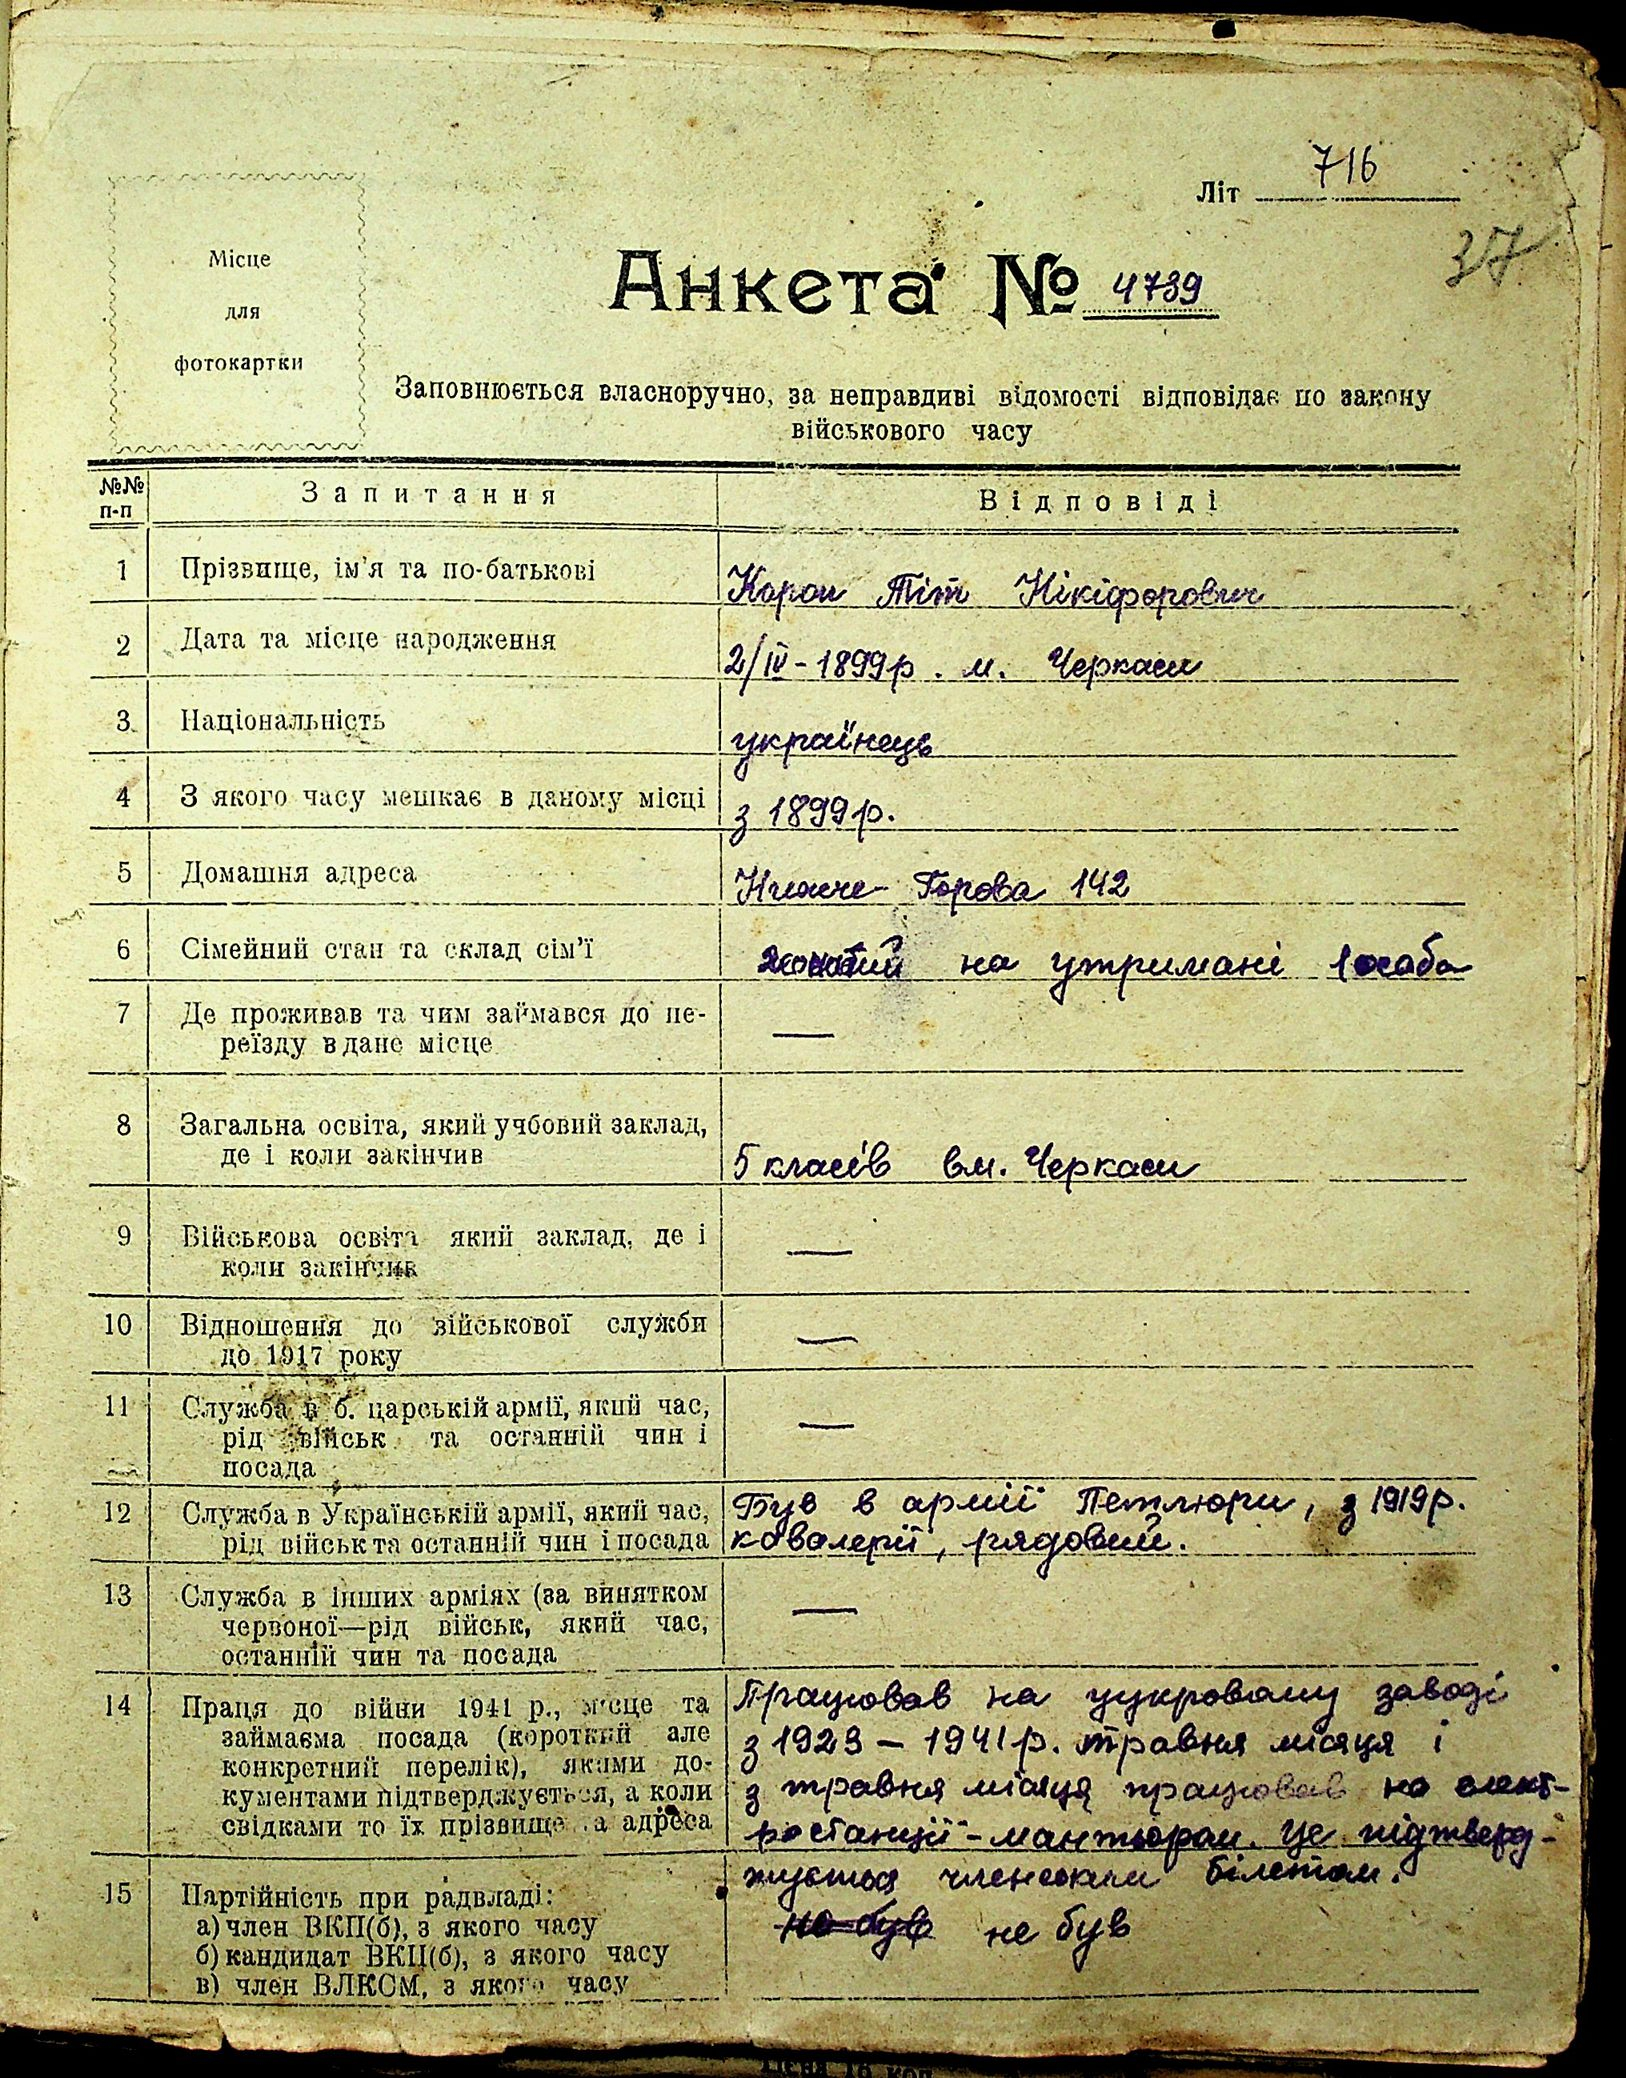 Літ 716
37
Місце
для
фотокартки
Анкета № 4739
Заповнюється власноручно, за неправдиві відомості відповідає по закону
військового часу
№№
п-п
Запитання
Відповіді
1
Прізвище, ім'я та по-батькові
Тіт Нікіфорович
2
Дата та місце народження
2/IV - 1899р. м. Черкаси
3
Національність
українець
4
З якого часу мешкає в даному місці
з 1899р.
5
Домашня адреса
Нижче-Горова 142
6
Сімейний стан та склад сім'ї
жонатий на утримані 1 особа
7
Де проживав та чим займався до пе-
реїзду в дане місце
—
8
Загальна освіта, який учбовий заклад,
де і коли закінчив
5 класів в м. Черкаси
9
Військова освіта який заклад, де і
коли закінчив
—
10
Відношення до військової служби
до 1917 року
—
11
Служба в б. царській армії, який час,
рід військ та останній чин і
посада
—
12
Служба в Українській армії, який час,
рід військ та останній чин і посада
Був в армії Петлюри, з 1919р.
кавалерії, рядовий.
13
Служба в інших арміях (за винятком
червоної—рід військ, який час,
останній чин та посада
—
14
Праця до війни 1941 р., місце та
займаєма посада (короткий але
конкретний перелік), якими до-
кументами підтверджується, а коли
свідками то їх прізвище та адреса
Працював на цукровому заводі
з 1923 — 1941р. травня місяця і
з травня місяця працював на елект-
ростанції - мантьором. Це підтверд-
жується членським білетом.
15
Партійність при радвладі:
а) член ВКП(б), з якого часу
б) кандидат ВКП(б), з якого часу
в) член ВЛКСМ, з якого часу
не був